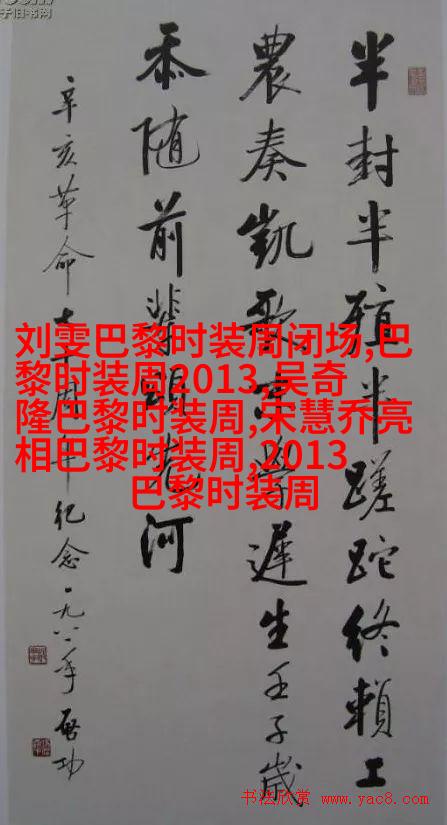 半封半殖半蹉跎终賴工
農奏凱歌末學遲生壬子歲
忝随前輩頌河
辛亥革命七十周年纪念一九八一年啓功
刘雯巴黎时装周闭场,巴
黎时装周2013,吴奇
隆巴黎时装周,宋慧乔亮
相巴黎时装周,2013
巴黎时装周
书法欣赏 www.yac8.com